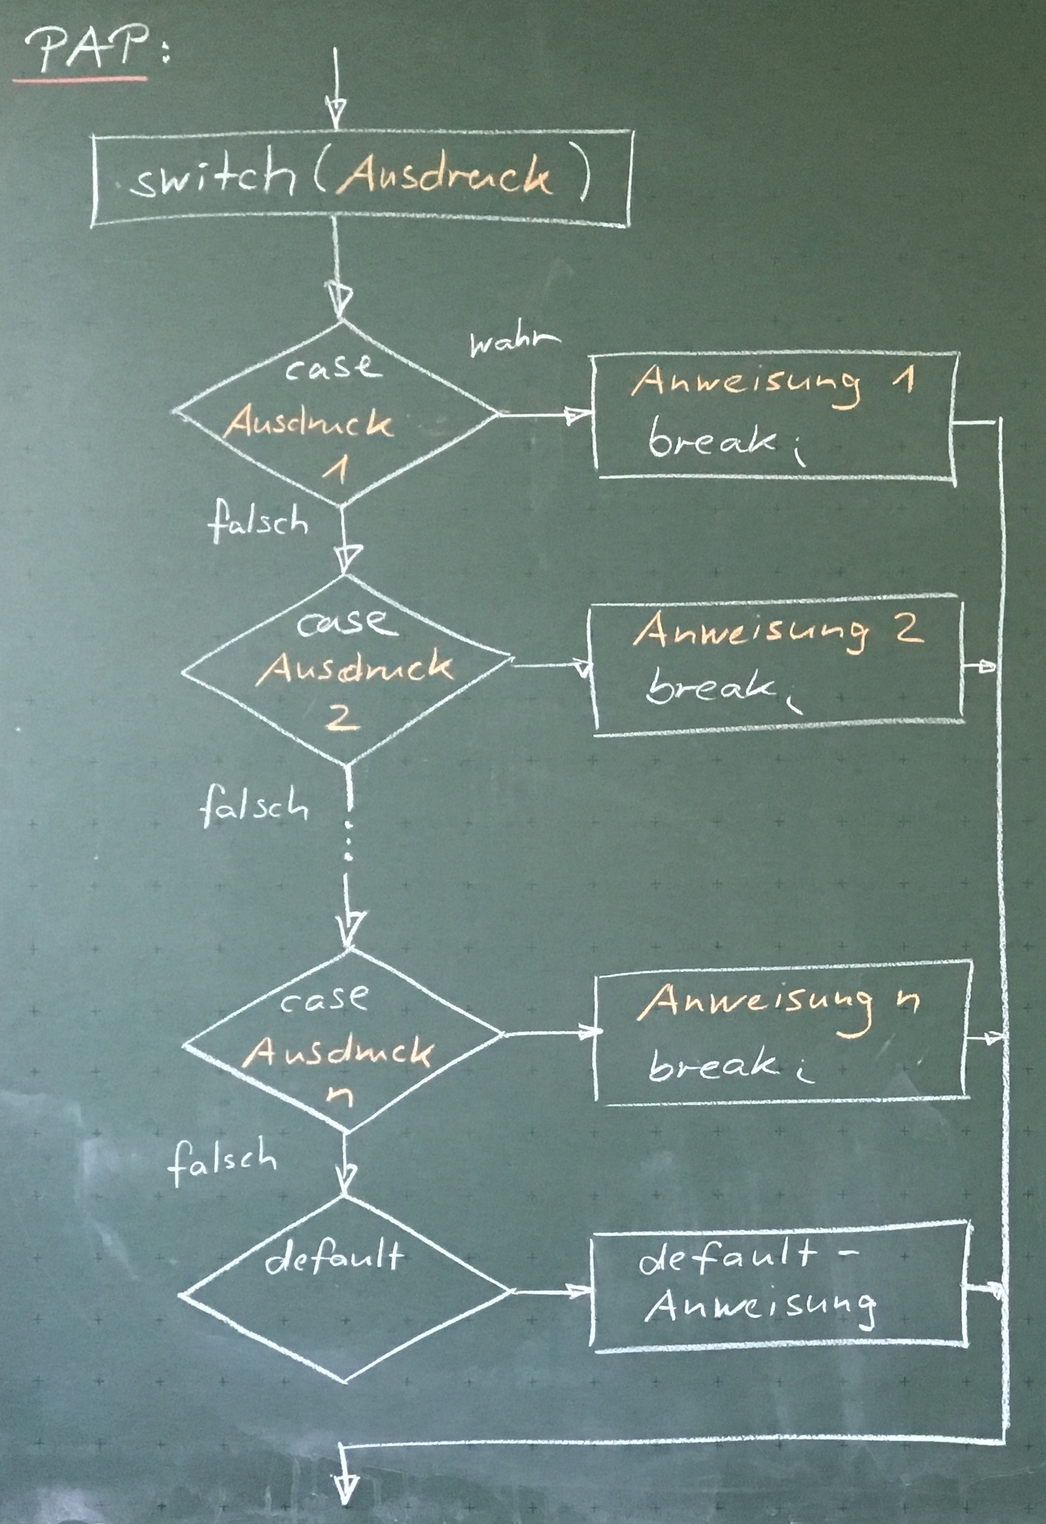 PAP:
switch (Ausdruck)
wahr
case
Ausdruck
1
Anweisung 1
break;
falsch
case
Ausdruck
2
Anweisung 2
break;
falsch
case
Ausdruck
n
Anweisung n
break;
falsch
default
default-
Anweisung